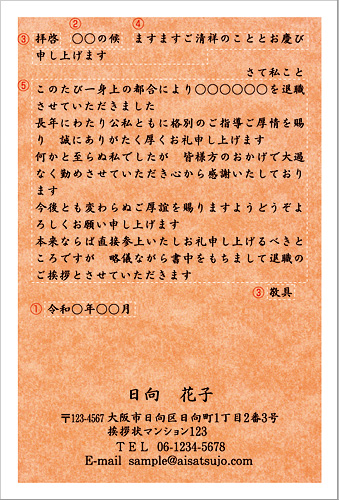 ② ④
③ 拝啓　〇〇の候　ますますご清祥のこととお慶び
申し上げます
さて私こと
⑤ このたび一身上の都合により〇〇〇〇〇〇を退職
させていただきました
長年にわたり公私ともに格別のご指導ご厚情を賜
り　誠にありがたく厚くお礼申し上げます
何かと至らぬ私でしたが　皆様方のおかげで大過
なく勤めさせていただき心から感謝いたしており
ます
今後とも変わらぬご厚誼を賜りますようどうぞよ
ろしくお願い申し上げます
本来ならば直接参上いたしお礼申し上げるべきと
ころですが　略儀ながら書中をもちまして退職の
ご挨拶とさせていただきます
③ 敬具
① 令和〇年〇〇月
日向　花子
〒123-4567 大阪市日向区日向町1丁目2番3号
挨拶状マンション123
ＴＥＬ 06-1234-5678
E-mail sample@aisatsujo.com